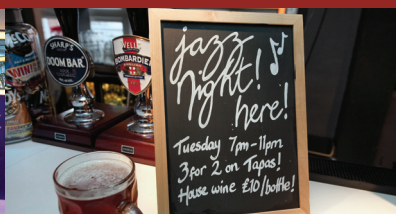 SHARP'S
DOOM BAR
WELLS
BOMBARDIER
jazz
night!
here!
Tuesday 7pm-11pm
3 for 2 on Tapas!
House wine £10/bottle!